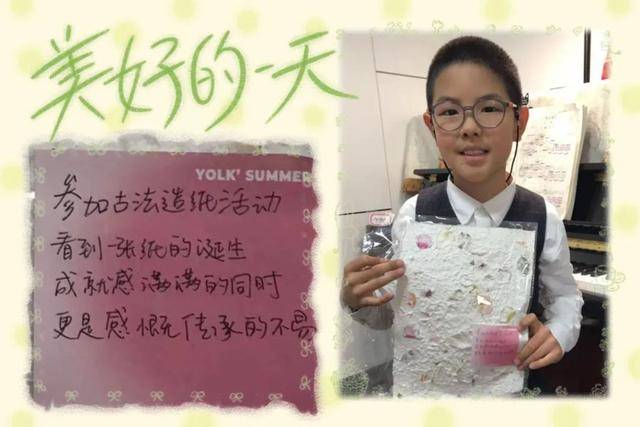 美好的一天
YOLK' SUMMER
参加古法造纸活动
看到一张纸的诞生
成就感满满的同时
更是感慨传承的不易